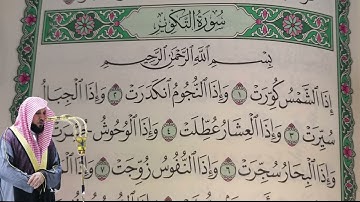 سُورَةُ التَّكْوِيرِ
بِسْمِ اللَّهِ الرَّحْمَٰنِ الرَّحِيمِ
إِذَا الشَّمْسُ كُوِّرَتْ ١ وَإِذَا النُّجُومُ انْكَدَرَتْ ٢ وَإِذَا الْجِبَالُ
سُيِّرَتْ ٣ وَإِذَا الْعِشَارُ عُطِّلَتْ ٤ وَإِذَا الْوُحُوشُ
وَإِذَا الْبِحَارُ سُجِّرَتْ ٦ وَإِذَا النُّفُوسُ زُوِّجَتْ ٧